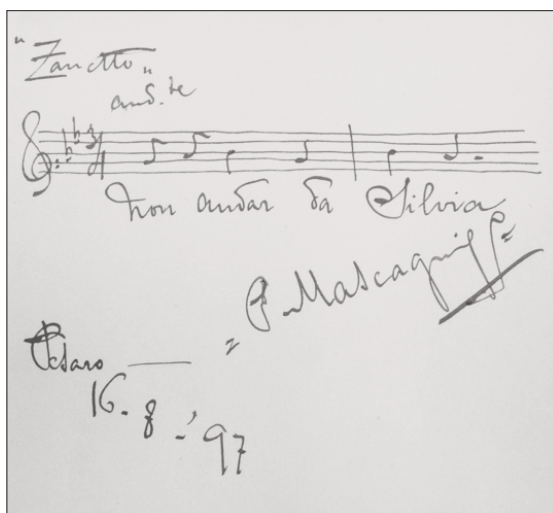 "Zanetto"
and.te
non andar da Silvia
P. Mascagni
Pesaro
16-8-'97